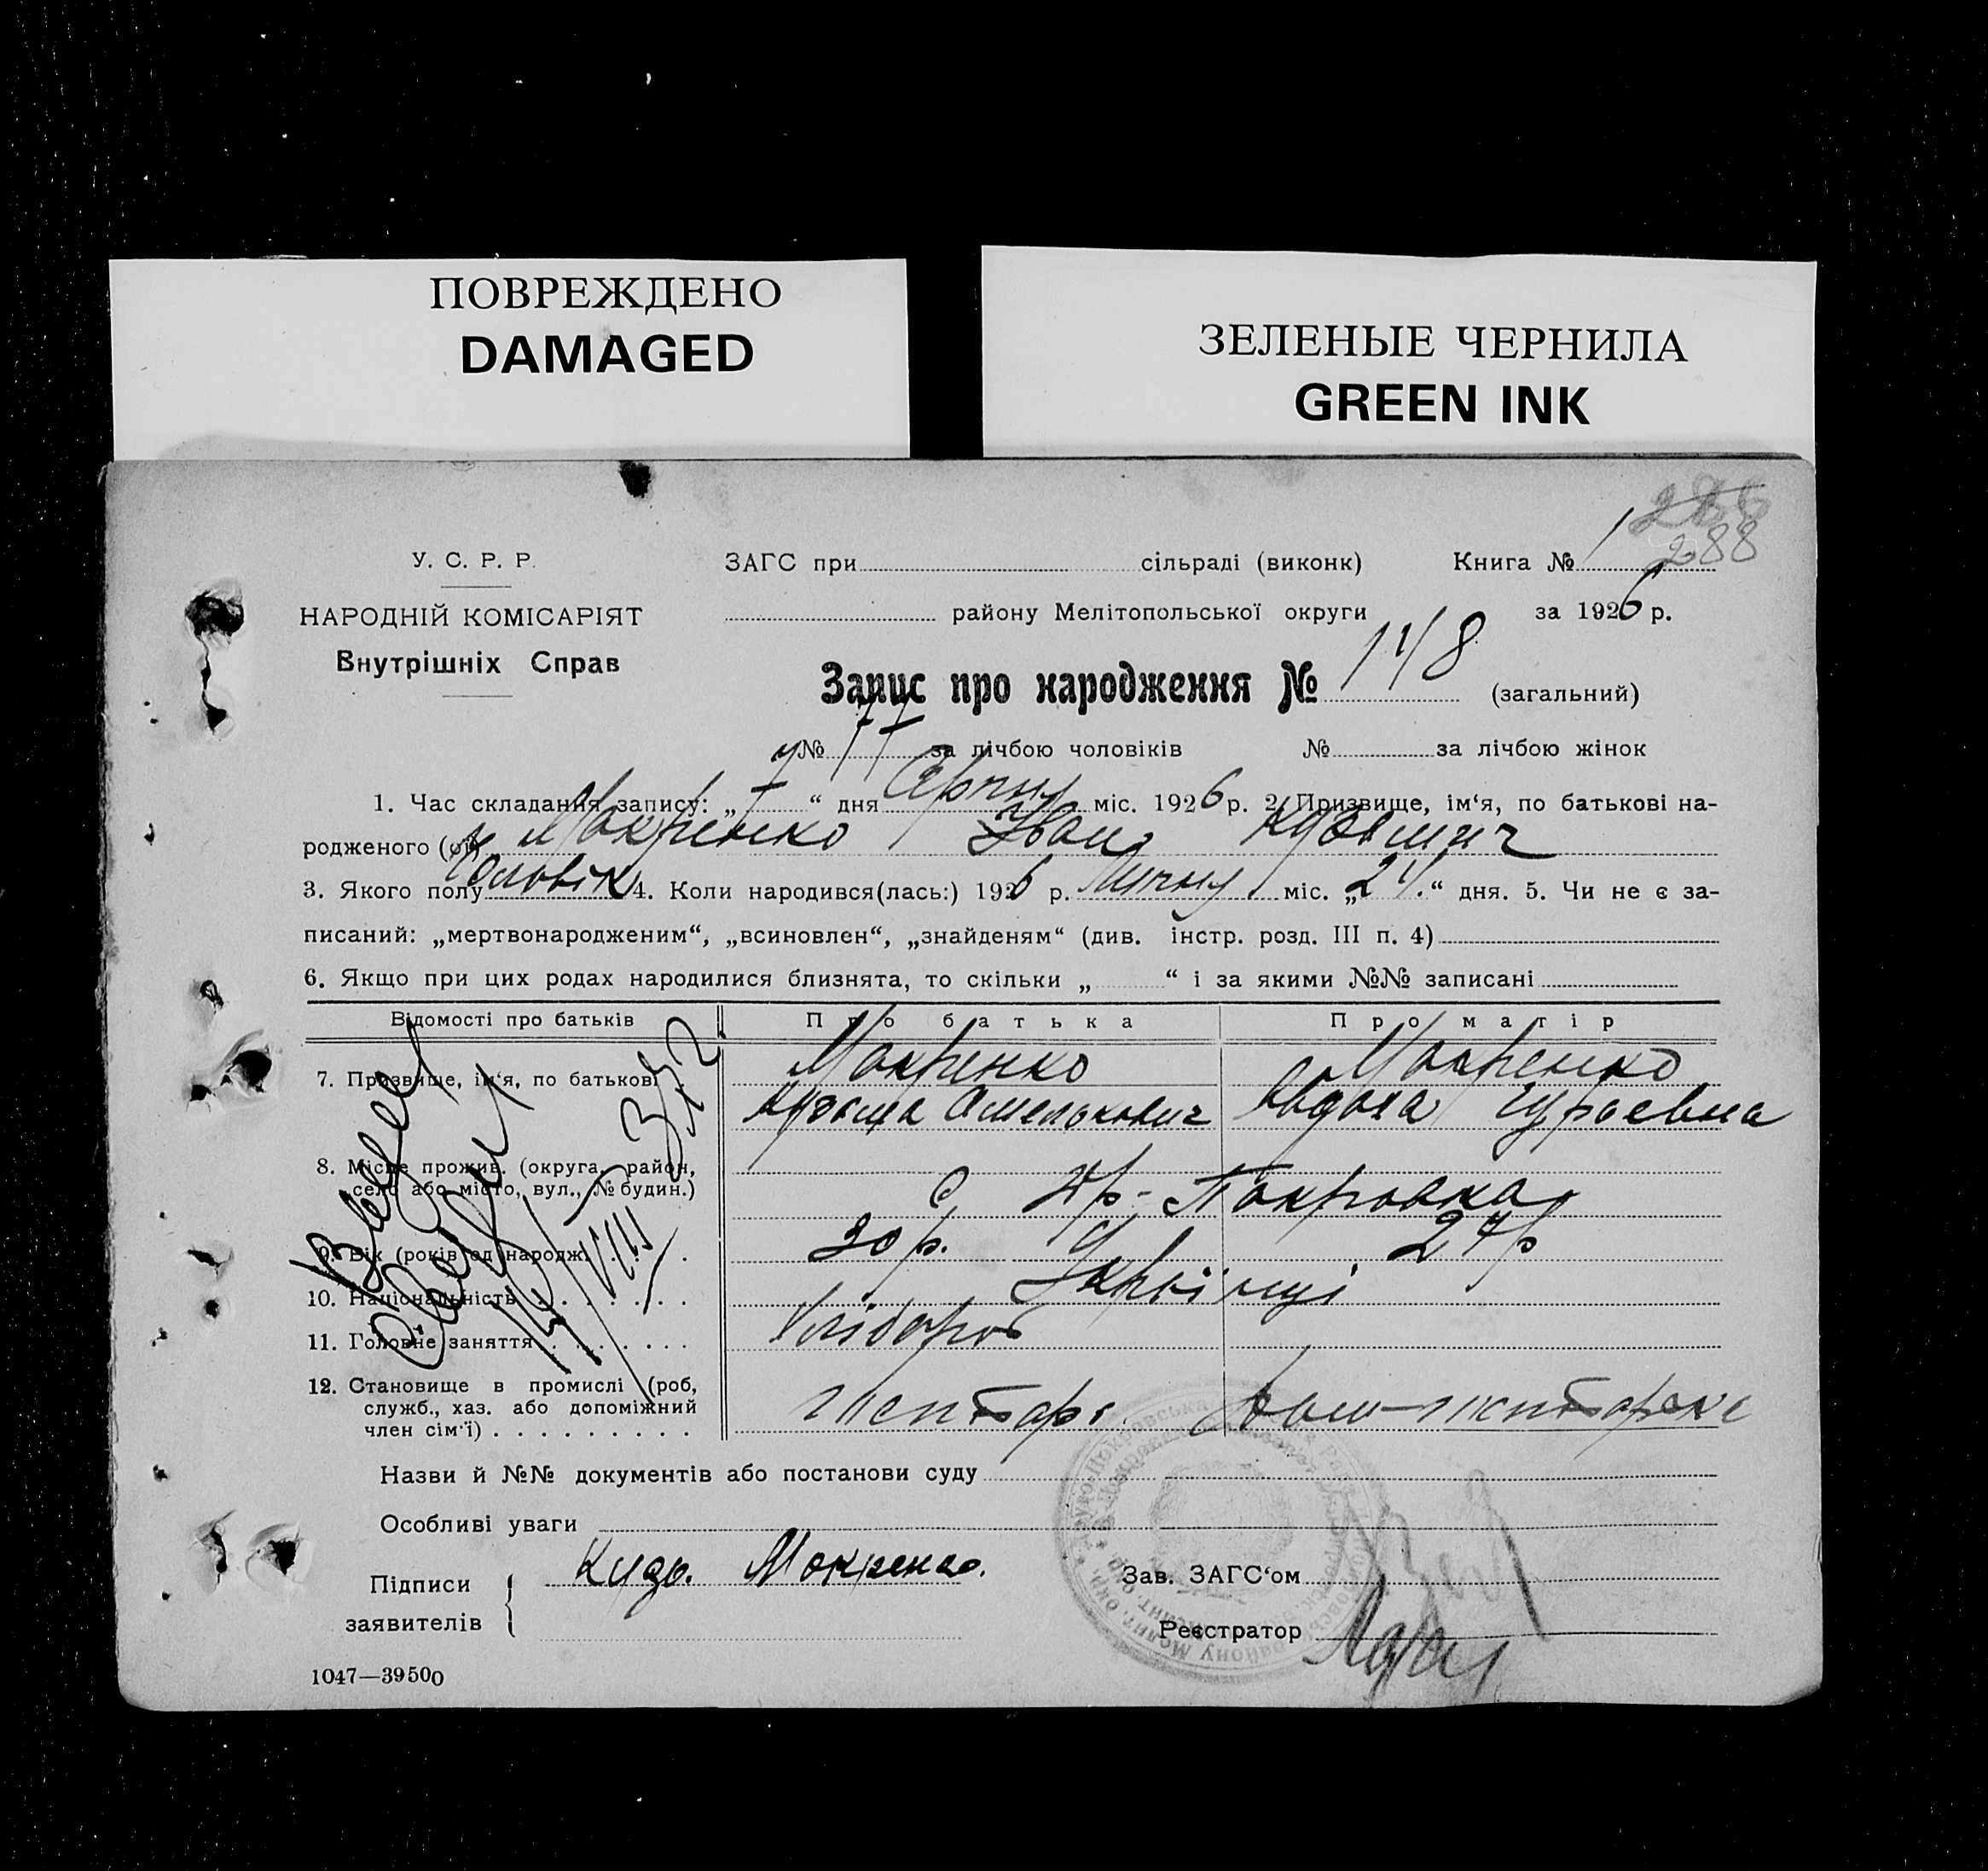 ПОВРЕЖДЕНО
DAMAGED
ЗЕЛЕНЫЕ ЧЕРНИЛА
GREEN INK
288
У. С. Р. Р.
НАРОДНІЙ КОМІСАРІЯТ
Внутрішніх Справ
ЗАГС при сільраді (виконк) Книга № 1
району Мелітопольської округи за 1926 р.
Запис про народження № 148 (загальний)
№ 77 за лічбою чоловіків № за лічбою жінок
1. Час складання запису: „ “ дня Серпня міс. 1926 р. 2. Призвище, ім‘я, по батькові на-
родженого (ої) Мокренко Іван Кузьмич
3. Якого полу Чоловік 4. Коли народився(лась:) 1926 р. Липня міс. „24“ дня. 5. Чи не є за-
писаний: „мертвонародженим“, „всиновлен“, „знайденям“ (див. інстр. розд. III п. 4)
6. Якщо при цих родах народилися близнята, то скільки „ “ і за якими №№ записані
Відомості про батьків Про батька Про матір
7. Призвище, ім‘я, по батькові Мокренко Мокренко
Кузьма Омелькович Явдоха Гурьевна
8. Місце прожив. (округа, район,
село або місто, вул., № будин.) с Др-Покровка
9. Вік (років од народж. 30 р. 27 р
10. Національність Українці
11. Головне заняття Хлібороб
12. Становище в промислі (роб,
служб., хаз. або допоміжний
член сім‘ї)
Назви й №№ документів або постанови суду
Особливі уваги
Підписи
заявителів
Кузь. Мокренко.
Зав. ЗАГС‘ом
Реєстратор
1047—39500